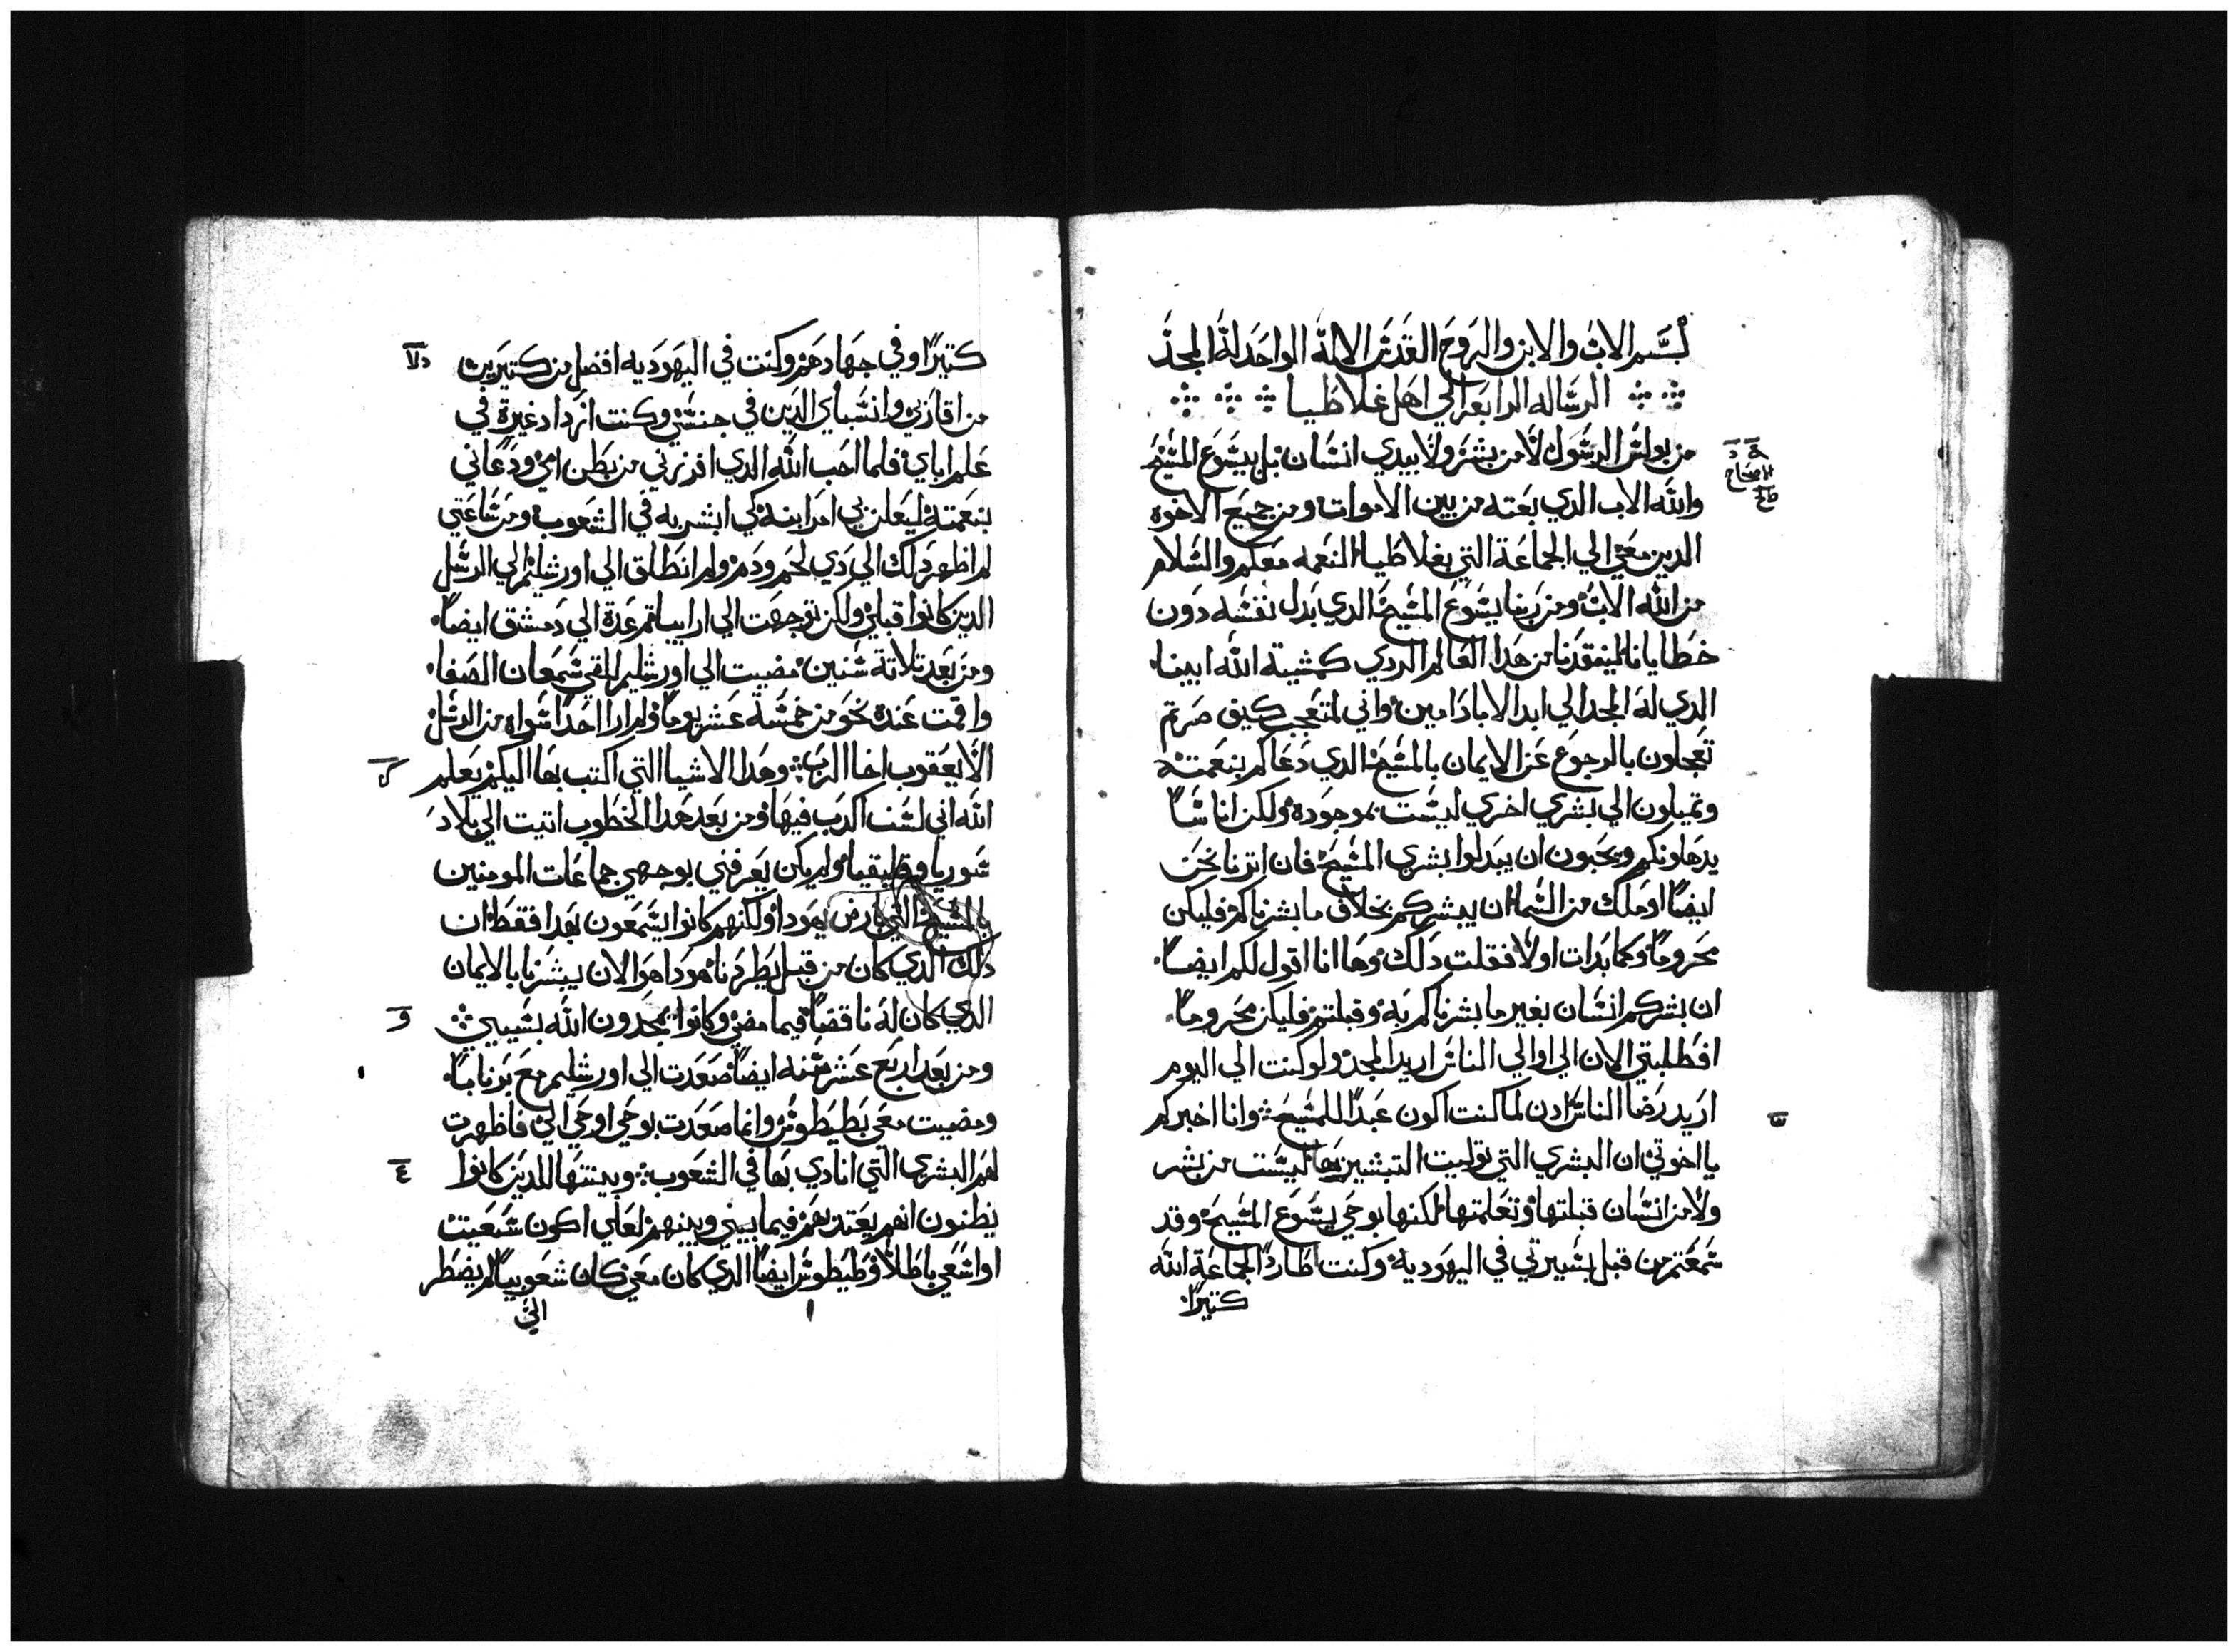 بسم الاب والابن والروح القدس الاله الواحد له المجد
الرساله الرابعه الي اهل غلاطيا
من بولس الرسول لا من بشر ولا بيدي انسان بل بيسوع المسيح
والله الاب الدي بعته من بين الاموات ومن جميع الاخوه
الدين معي الي الجماعة التي بغلاطيا النعمه معكم والسلام
من الله الاب ومن ربنا يسوع المسيح الدي بدل نفسه دون
خطايانا لينقدنا من هدا العالم الردي كمشية الله ابينا
الدي له المجد الي ابد الاباد امين واني لمتعجب كيف صرتم
تعجلون بالرجوع عن الايمان بالمسيح الدي دعاكم بنعمته
وتميلون الي بشري اخري ليست بموجوده ولكن اناسًا
يدهاونكم ويحبون ان يبدلوا بشري المسيح فان اترنا نحن
ايضًا او ملك من السما ان يبشركم بخلاف ما بشرناكم فليكن
محرومًا وكما بدات اولا فقلت دلك وها انا اقول لكم ايضًا
ان بشركم انسان بغير ما بشرناكم به وقبلتم فليكن محرومًا
افطلبتي الان الي اوالي الناس اريد المجد ولو كنت الي اليوم
اريد رضا الناس ادن لما كنت اكون عبدًا للمسيح وانا اخبركم
يا اخوتي ان البشري التي توليت التبشير بها ليست من بشر
ولا من انسان قبلتها وتعلمتها لكنها بوحي يسوع المسيح وقد
سمعتم من قبل بسيرتي في اليهودية وكنت اطارد الجماعة الله
كتيرًا
كتيرًا وفي جهادهم وكنت في اليهوديه افضل من كتيرين
من اقازني وانسباي الدين في جنسي وكنت ازداد غيرة في
علم اباي فلما احب الله الدي افرزني من بطن امي ودعاني
بنعمته ليعلن بي امر ابنه كي ابشر به في الشعوب ومن ساعتي
لم اظهر دلك الي دي لحم ودم ولم انطلق الي اورشليم الي الرسل
الدين كانوا قبلي ولكن توجهت الي ارابيا تم عدة الي دمشق ايضًا
ومن بعد تلاتة سنين مضيت الي اورشليم لالقي شمعان الصفا
واقمت عنده نحو من خمسة عشر يومًا ولم ار احدًا سواه من الرسل
الا يعقوب اخا الرب وهدا الاشيا التي اكتب بها اليكم يعلم
الله اني لست اكدب فيها ومن بعد هدا الخطوب اتيت الي بلاد
سوريا وقليقيا ولم يكن يعرفني بوجهي جماعات المومنين
بالمسيح التي بارض يهودا ولكنهم كانوا يسمعون بهدا فقط ان
دلك الدي كان من قبل يطردنا هودا هو الان يبشرنا بالايمان
الدي كان له ناقضًا فيما مضي وكانوا يمجدون الله بسببي
ومن بعد اربع عشر سنه ايضًا صعدت الي اورشليم مع برنابا
ومضيت معي بطيطوس وانما صعدت بوحي اوحي الي فاظهرت
لهم البشري التي انادي بها في الشعوب وبينتها للدين كانوا
يظنون انهم يعتد بهم فيما بيني وبينهم لعلي اكون سعيت
او اسعي باطلًا وطيطوس ايضًا الدي كان معي كان شعوبيًا لم يضطر
الي